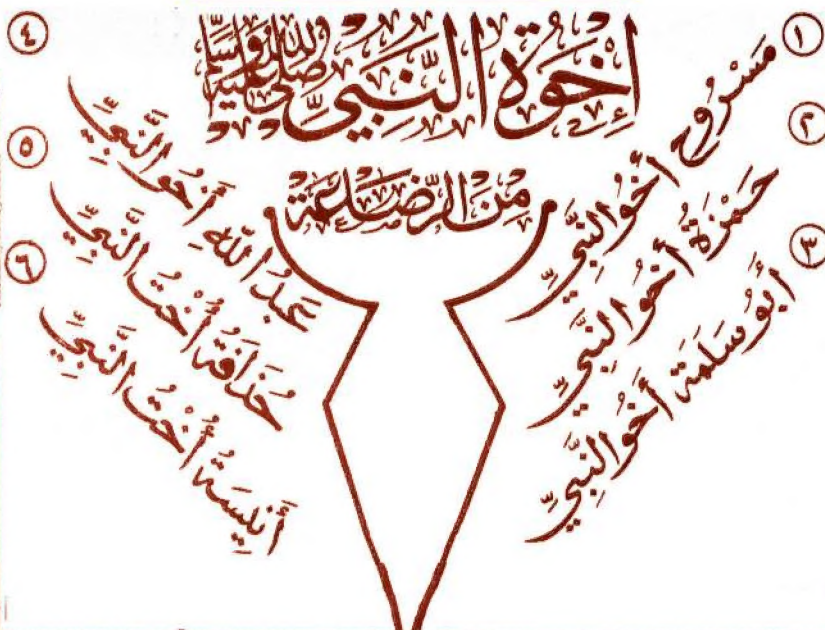 إخوة النبيّ صلى الله عليه وسلم
من الرّضاعة
١ مَسْرُوح أخُو النبيِّ
٢ حَمْزَةُ أخُو النبيِّ
٣ أبُو سَلَمَة أخُو النبيِّ
٤ عَبدُ اللهِ أَخُو النَّبيِّ
٥ حُذَافَةُ أُخْتُ النَّبيِّ
٦ أُنَيِسَةُ أُخْتُ النَّبيِّ